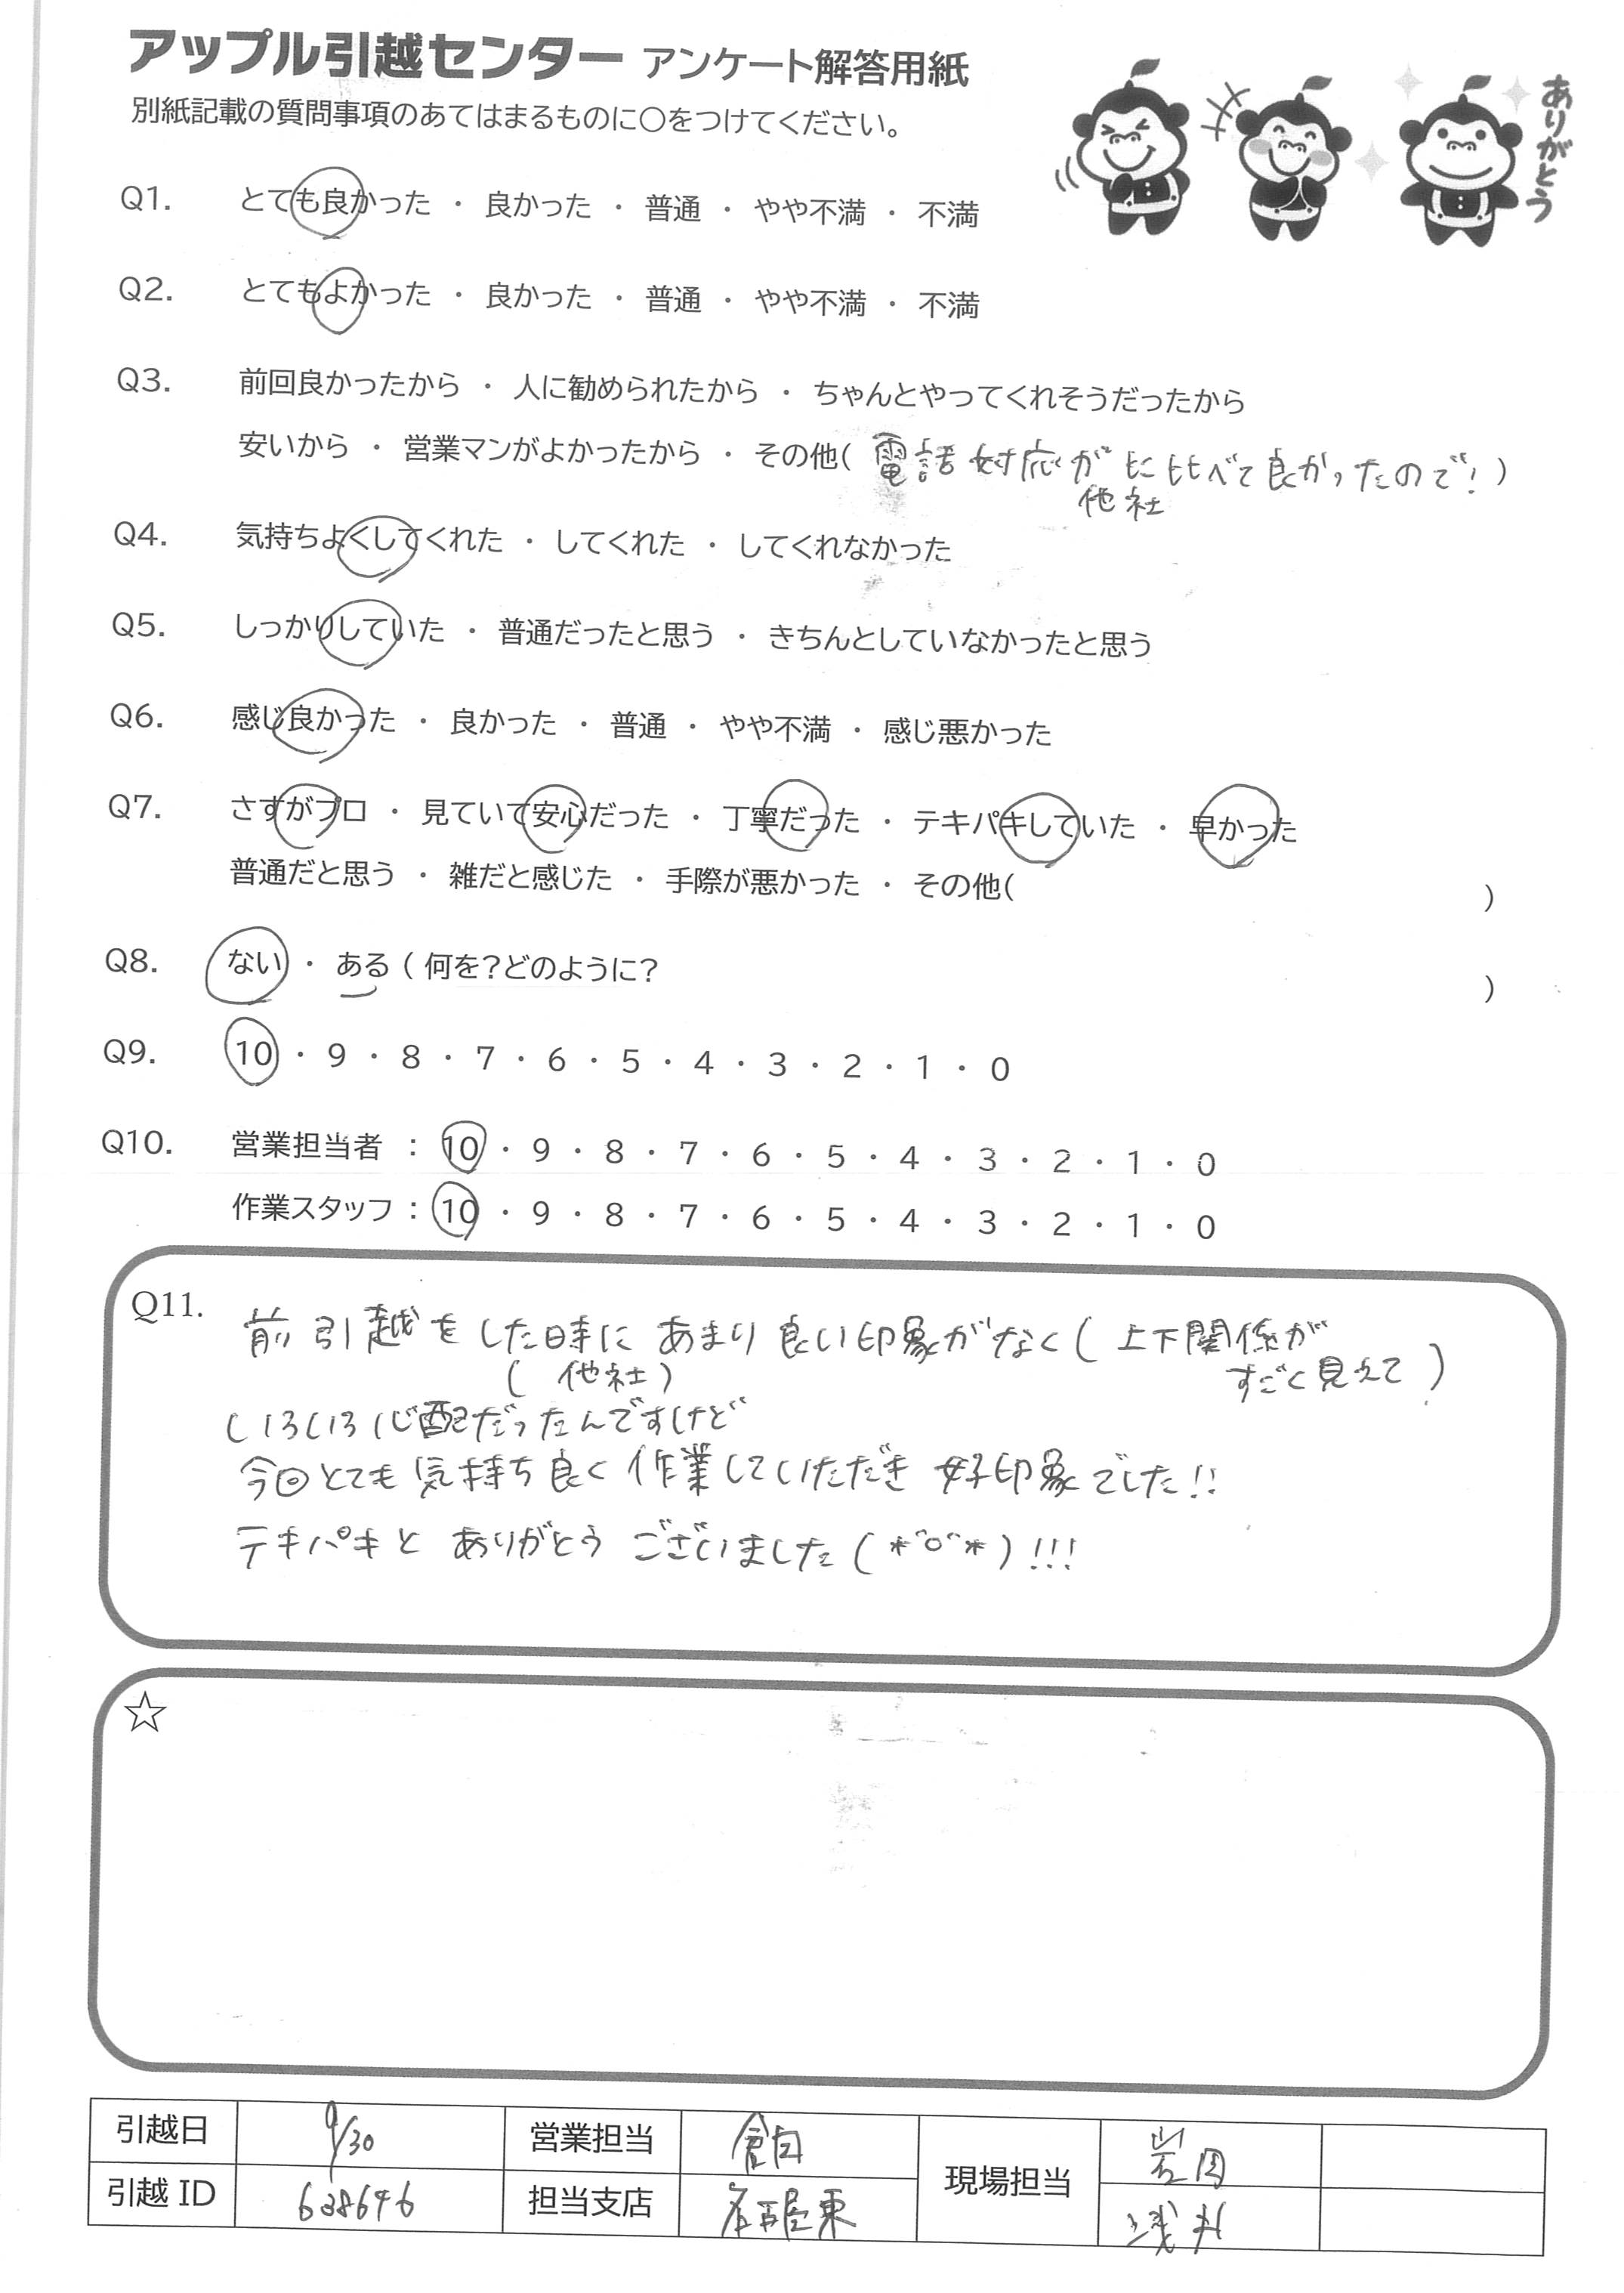 アップル引越センター アンケート解答用紙
別紙記載の質問事項のあてはまるものに○をつけてください。
ありがとう
Q1. とても良かった ・ 良かった ・ 普通 ・ やや不満 ・ 不満
Q2. とてもよかった ・ 良かった ・ 普通 ・ やや不満 ・ 不満
Q3. 前回良かったから ・ 人に勧められたから ・ ちゃんとやってくれそうだったから
安いから ・ 営業マンがよかったから ・ その他( 電話対応が に比べて良かったので! )
他社
Q4. 気持ちよくしてくれた ・ してくれた ・ してくれなかった
Q5. しっかりしていた ・ 普通だったと思う ・ きちんとしていなかったと思う
Q6. 感じ良かった ・ 良かった ・ 普通 ・ やや不満 ・ 感じ悪かった
Q7. さすがプロ ・ 見ていて安心だった ・ 丁寧だった ・ テキパキしていた ・ 早かった
普通だと思う ・ 雑だと感じた ・ 手際が悪かった ・ その他( )
Q8. ない ・ ある ( 何を?どのように? )
Q9. 10 ・ 9 ・ 8 ・ 7 ・ 6 ・ 5 ・ 4 ・ 3 ・ 2 ・ 1 ・ 0
Q10. 営業担当者 : 10 ・ 9 ・ 8 ・ 7 ・ 6 ・ 5 ・ 4 ・ 3 ・ 2 ・ 1 ・ 0
作業スタッフ : 10 ・ 9 ・ 8 ・ 7 ・ 6 ・ 5 ・ 4 ・ 3 ・ 2 ・ 1 ・ 0
Q11. 前 引越をした時に あまり良い印象がなく( 上下関係が
( 他社 ) すごく見えて )
いろいろ心配だったんですけど
今回とても気持ち良く作業していただき 好印象でした!!
テキパキと ありがとう ございました (*°○°*)!!!
☆
引越日 9/30 営業担当 現場担当 岩岡
引越ID 638646 担当支店 名古屋東 浅井